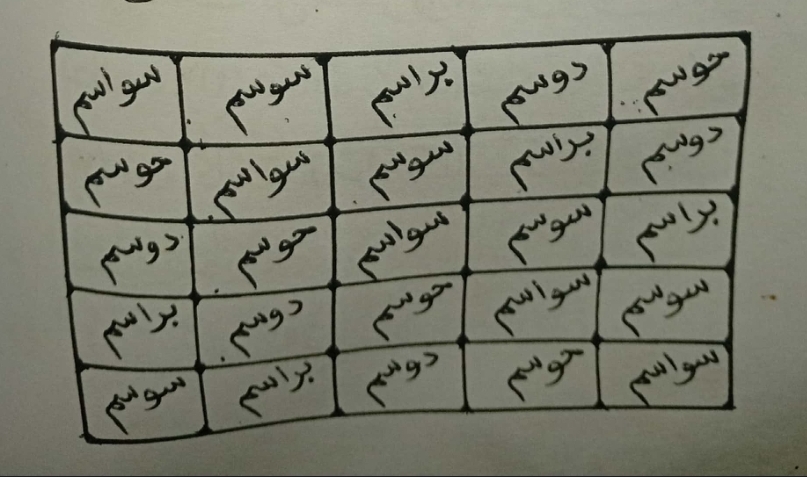 حوسم دوسم براسم سوسم سواسم
دوسم براسم سوسم سواسم حوسم
براسم سوسم سواسم حوسم دوسم
سوسم سواسم حوسم دوسم براسم
سواسم حوسم دوسم براسم سوسم